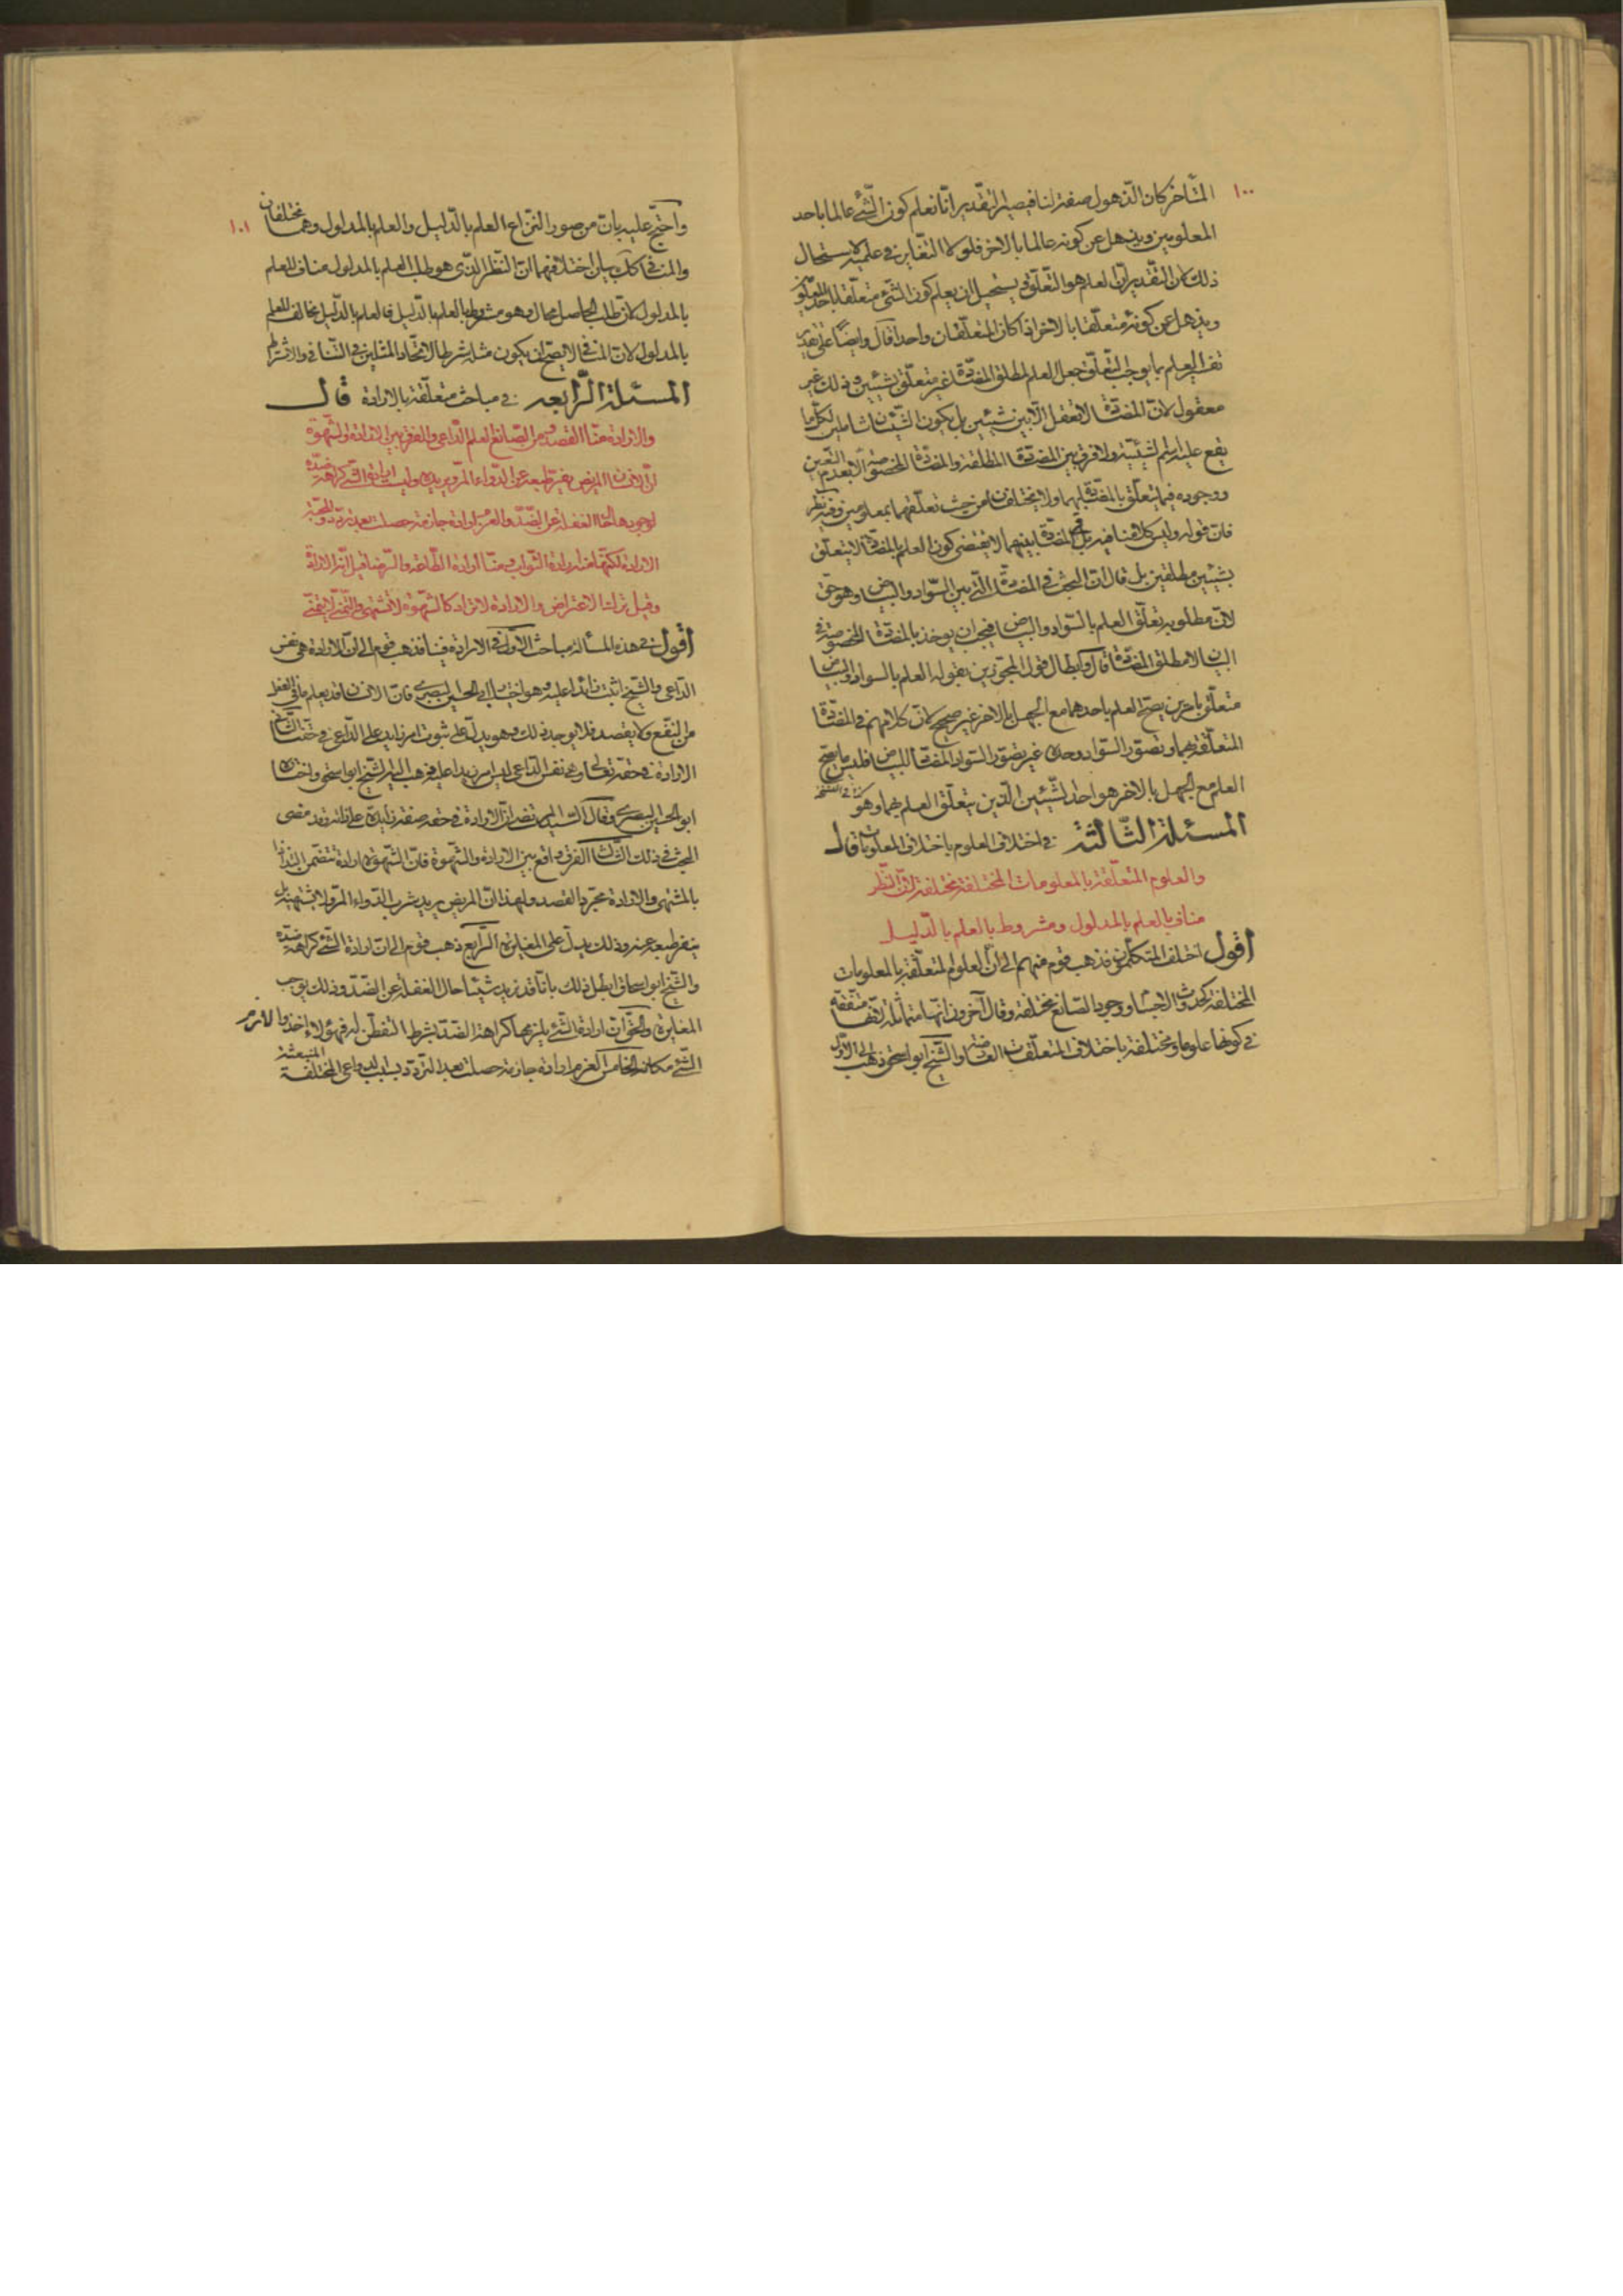 ١٠٠
المتأخر كان الذهول صفة لنا فيصير التقدير انا نعلم كون الشئ عالما باحد
المعلومين ونذهل عن كونه عالما بالاخر فلولا التغاير في علميه لاستحال
ذلك لان التقدير ان العلم هو التعلق ويستحيل ان يعلم كون الشئ متعلقا باحد
ويذهل عن كونه متعلقا بالاخر اذا كان المتعلقان واحدا قال وايضا على
تفسير العلم بما يوجب التعلق جعل العلم لمطلق المضادة غير متعلق بشيئين وذلك غير
معقول لان المضادة لا تعقل الا بين شيئين بل يكون الشيئان شاملين لكل ما
يقع عليه اسم لشيئية ولا فرق بين المضادة المطلقة والمضادة المخصوصة الا بعدم التعين
ووجوده فيما يتعلق بالمضادة بهما ولا يختلفان من حيث تعلقهما بمعلومين وفيه نظر
فان قوله وليس كلامنا فيه بل في المضادة بينهما لا يقتضى كون العلم بالمضادة لا يتعلق
بشيئين مطلقين بل قال ان البحث في المضادة التي بين السواد والبياض وهو حق
لان مطلوبه تعلق العلم بالسواد والبياض فيجب ان يوخذ بالمضادة المخصوصة في
البيان لا مطلق المضادة قال وابطال قول المجوزين بقوله العلم بالسواد والبياض
متعلق بامرين يصح العلم باحدهما مع الجهل بالاخر غير صحيح لان كلامهم في المضادة
المتعلقة بهما وتصور السواد وحده غير تصور السواد المضاد للبياض فليس ما يصح
العلم مع الجهل بالاخر هو احد الشيئين الذين يتعلق العلم بهما وهو كذا في النسخة
المسئلة الثالثة في اختلاف العلوم باختلاف المعلومات قال
والعلوم المتعلقة بالمعلومات المختلفة مختلفة لان النظر
مناف بالعلم بالمدلول ومشروط بالعلم بالدليل
اقول اختلف المتكلمون فذهب قوم منهم الى ان العلوم المتعلقة بالمعلومات
المختلفة كحدوث الاجسام ووجود الصانع مختلفة وقال آخرون انها متماثلة لانها متفقة
في كونها علوما ومختلفة باختلاف المتعلقات العارضة والشيخ ابو اسحق ذهب الى الاول
١٠١
واحتج عليه بان من صور النزاع العلم بالدليل والعلم بالمدلول وهما مختلفان
بيان اختلافهما ان النظر الذى هو طلب العلم بالمدلول مناف للعلم
بالمدلول لان طلب الحاصل محال وهو مشروط بالعلم بالدليل فالعلم بالدليل مخالف للعلم
بالمدلول لان المنافى لا يصح ان يكون مثله شرطا لاتحاد المثلين في التنافى والاشتراط
المسئلة الرابعه في مباحث متعلقة بالارادة قال
والارادة منا القصد ومن الصانع العلم الداعى والفرق بين الارادة والشهوة
ان الانسان المريض ينفر طبعه عن الدواء المر ويريده وليست ارادة الشئ كراهة ضده
لوجودها حال الغفلة عن الضد والعزم ارادة جازمة حصلت بعد تردد والمحبة
الارادة لكنها منه ارادة الثواب ومنا ارادة الطاعة والرضا قيل انه الارادة
وقيل ترك الاعتراض والارادة لا تراد كالشهوة لا تشتهى والتمنى لا يتمنى
اقول في هذه المسألة مباحث الاول في الارادة فينا فذهب قوم الى ان الارادة هى نفس
الداعى والشيخ اثبت زائدا عليه وهو اختيار ابى الحسين البصرى فان الانسان قد يعلم ما في الفعل
من النفع ولا يقصد فلا يوجد ذلك وهو يدل على ثبوت امر زايد على الداعى في حقنا الثانى
الارادة في حقه تعالى هى نفس الداعى ليس امرا زايدا عليه ذهب اليه الشيخ ابو اسحق واختاره
ابو الحسين البصرى وقال السيد المرتضى ان الارادة في حقه صفة زايدة على ذاته وقد مضى
البحث في ذلك الثالث الفرق واقع بين الارادة والشهوة فان الشهوة ارادة تتضمن التذاذا
بالمشتهى والارادة مجرد القصد ولهذا ان المريض يريد شرب الدواء المر ولا يشتهيه بل
ينفر طبعه عنه وذلك يدل على المغايرة الرابع ذهب قوم الى ان ارادة الشئ كراهة ضده
والشيخ ابو اسحاق ابطل ذلك بانا قد نريد شيئا حال الغفلة عن الضد وذلك يوجب
المغايرة والحق ان ارادة الشئ يلزمها كراهة الضد بشرط التفطن له فهؤلاء اخذوا لازم
الشئ مكانه الخامس العزم ارادة جازمة حصلت بعد التردد بسبب الدواعى المختلفة المنبعثة